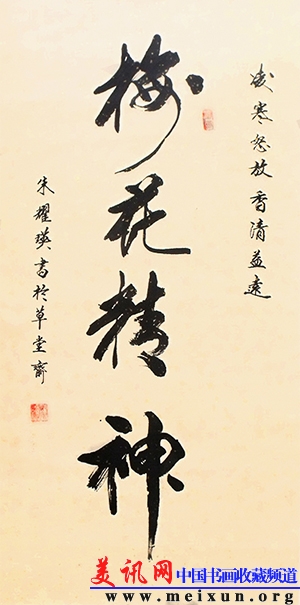 凌寒怒放香清益远
梅花精神
朱耀瑛书於草堂斋
美讯网 中国书画收藏频道
www.meixun.org